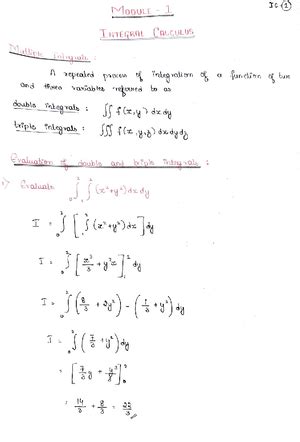 IC (1)
MODULE - 1
INTEGRAL CALCULUS
Multiple Integrals :
A repeated process of integration of a function of two
and three variables referred to as
double integrals : ∬ f(x,y) dx dy
triple integrals : ∭ f(x,y,z) dx dy dz
Evaluation of double and triple integrals :
1) Evaluate ∫₀² ∫₁² (x²+y²) dx dy
I = ∫₀² [ ∫₁² (x²+y²) dx ] dy
I = ∫₀² [ x³/3 + y²x ]₁² dy
I = ∫₀² ( 8/3 + 2y² ) - ( 1/3 + y² ) dy
I = ∫₀² ( 7/3 + y² ) dy
= [ 7/3 y + y³/3 ]₀²
= 14/3 + 8/3 = 22/3